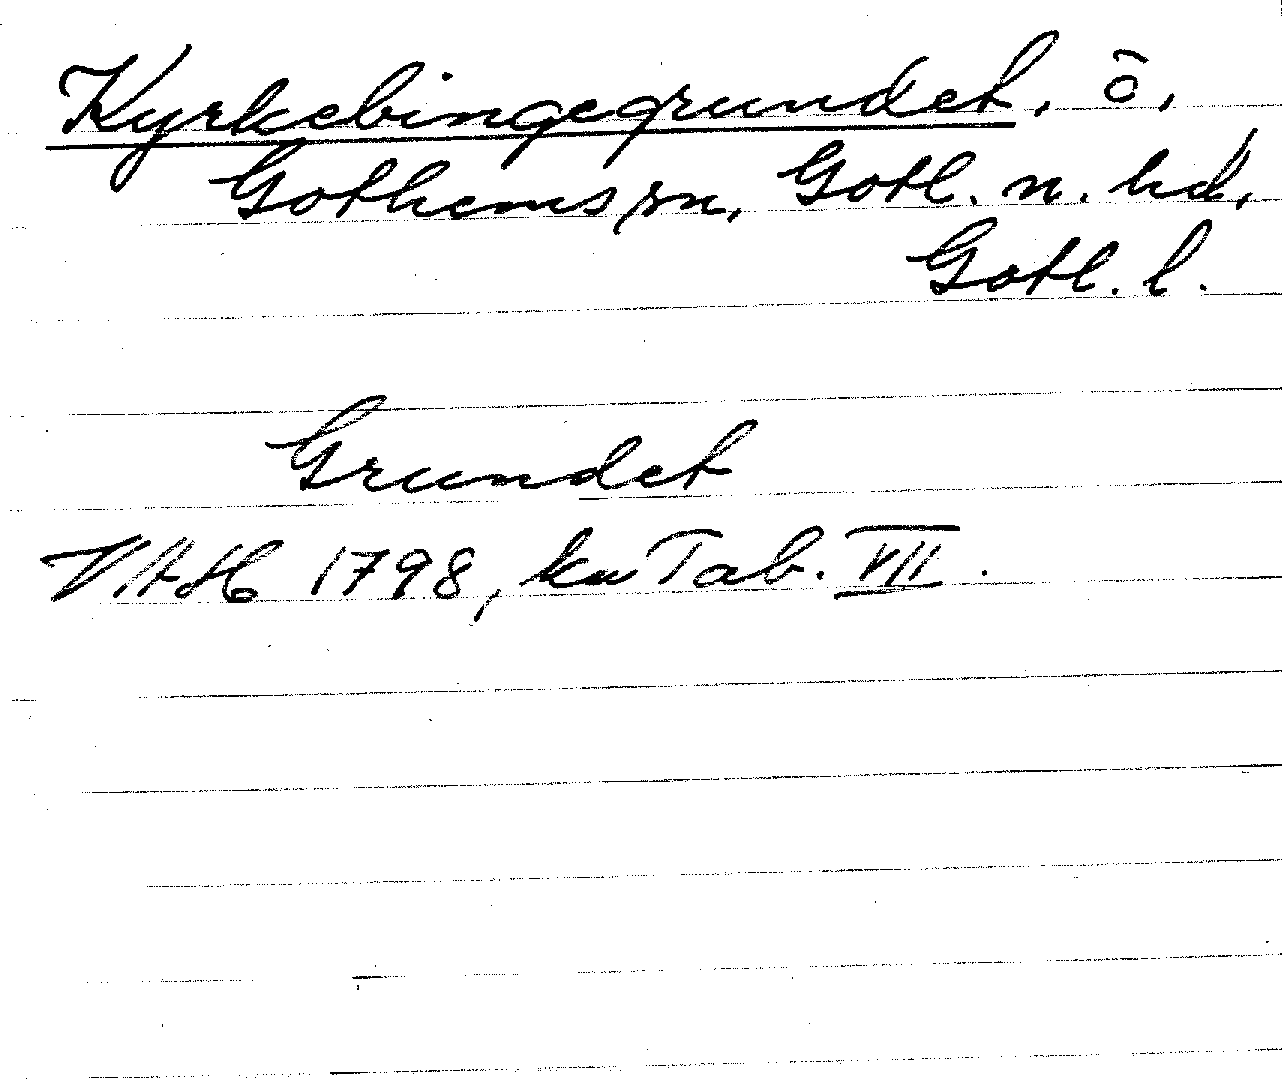 Kyrkebingegrundet, ö,
Gothems sn, Gotl. n. hd,
Gotl. l.
Grundet
VAH 1798, ku Tab. VII.